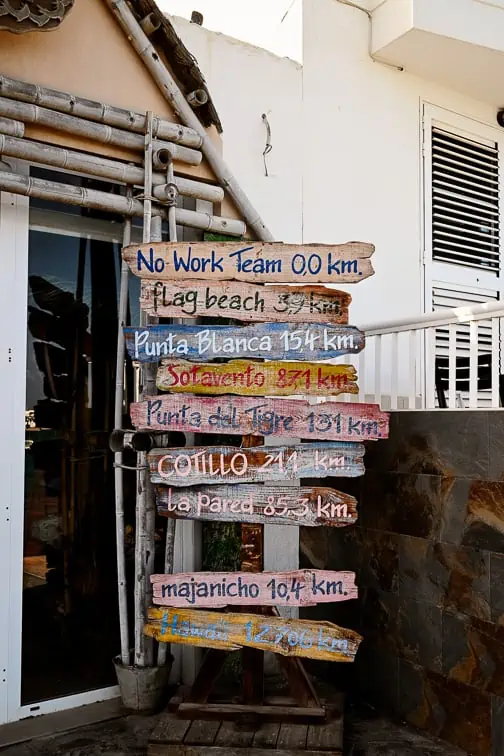 No Work Team 0,0 km.
flag beach 3,9 km.
Punta Blanca 15,4 km.
Sotavento 87,1 km
Punta del Tigre 131 km.
COTILLO 21,1 km.
la pared 85,3 km.
majanicho 10,4 km.
Hawaii 12.706 km.